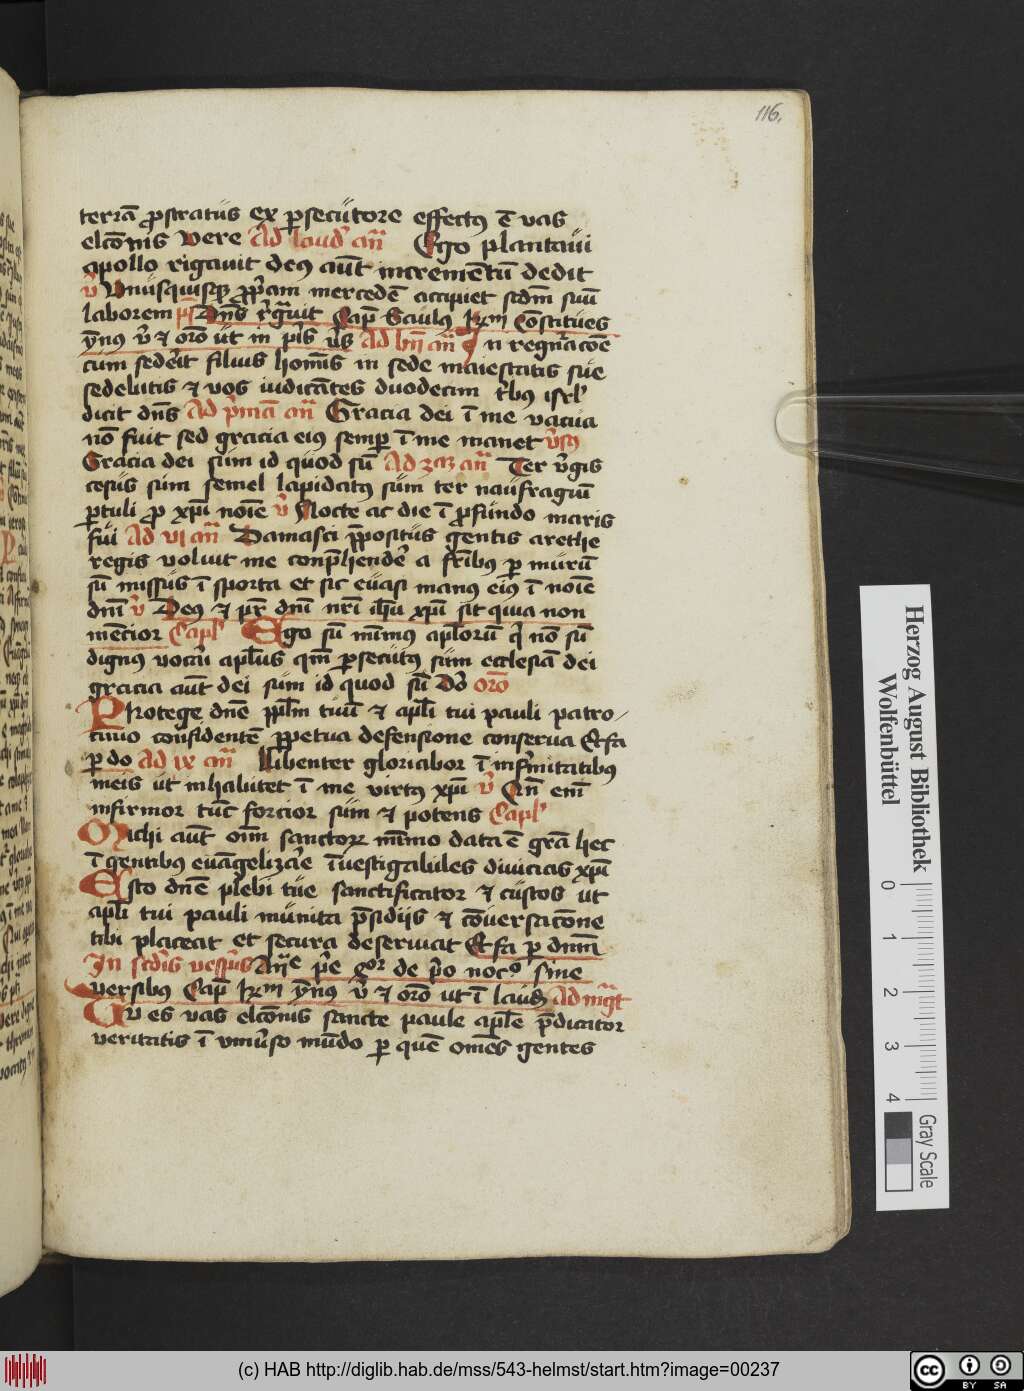 116.
terrā prostratus ex persecutore effectus ē vas
elcōnis vere Ad laud an Ego plantavi
apollo rigavit deus aūt incremētū dedit
v Unusquisque ppam mercedē accipiet scdm suū
laborem ps Dns Cap Saulus ymn Constitues
ymnus v et oro ut in Ad bn an In regnacōe
cum sederit filius homīs in sede maiestatis sue
sedebitis et vos iudicātes duodecim tbus isrl
dicit dns Ad pmā an Gracia dei ī me vacua
nō fuit sed gracia eius semper ī me manet vsus
Gracia dei sum id quod sū Ad an Ter vgis
cesus sum semel lapidatus sum ter naufragiū
ptuli pro xpi noīe v Nocte ac die ī profundo maris
fui Ad vi an Damasci ppositus gentis arethe
regis voluit me conphendere a frībus per murū
sū missus ī sporta et sic evasi manus eius ī noīe
dni v Deus et pr dni nri ihu xpi sit quia non
mēcior Capl Ego sū mīmus aplorū q nō sū
dignus vocari aplus qm persecutus sum ecclesiā dei
gracia aūt dei sum id quod sū Do oro
Protege dnē pplm tuū et apli tui pauli patro
cinio confidentē ppetua defensione conserva Et fa
per do Ad ix an Libenter gloriabor ī infirmitatibus
meis ut inhabitet ī me virtus xpi v Cū enī
infirmor tūc forcior sum et potens Capl
Michi aūt oīm sanctorum mīmo data ē grā hec
ī gentibus evāgelizare īvestigabiles divicias xpi
Esto dnē plebi tue sanctificator et custos ut
apli tui pauli munita psidiis et cōversacōne
tibi placeat et secura deserviat Et fa per dnm
In scdis vespis pe de sine
versibus Cap ymn ymnus v et oro ut ī laud Ad mgt
Tu es vas elcōnis sancte paule aple pdicator
veritatis ī universo mūdo per quē omēs gentes
Herzog August Bibliothek
Wolfenbüttel
0 1 2 3 4
Gray Scale
(c) HAB http://diglib.hab.de/mss/543-helmst/start.htm?image=00237
cc BY SA